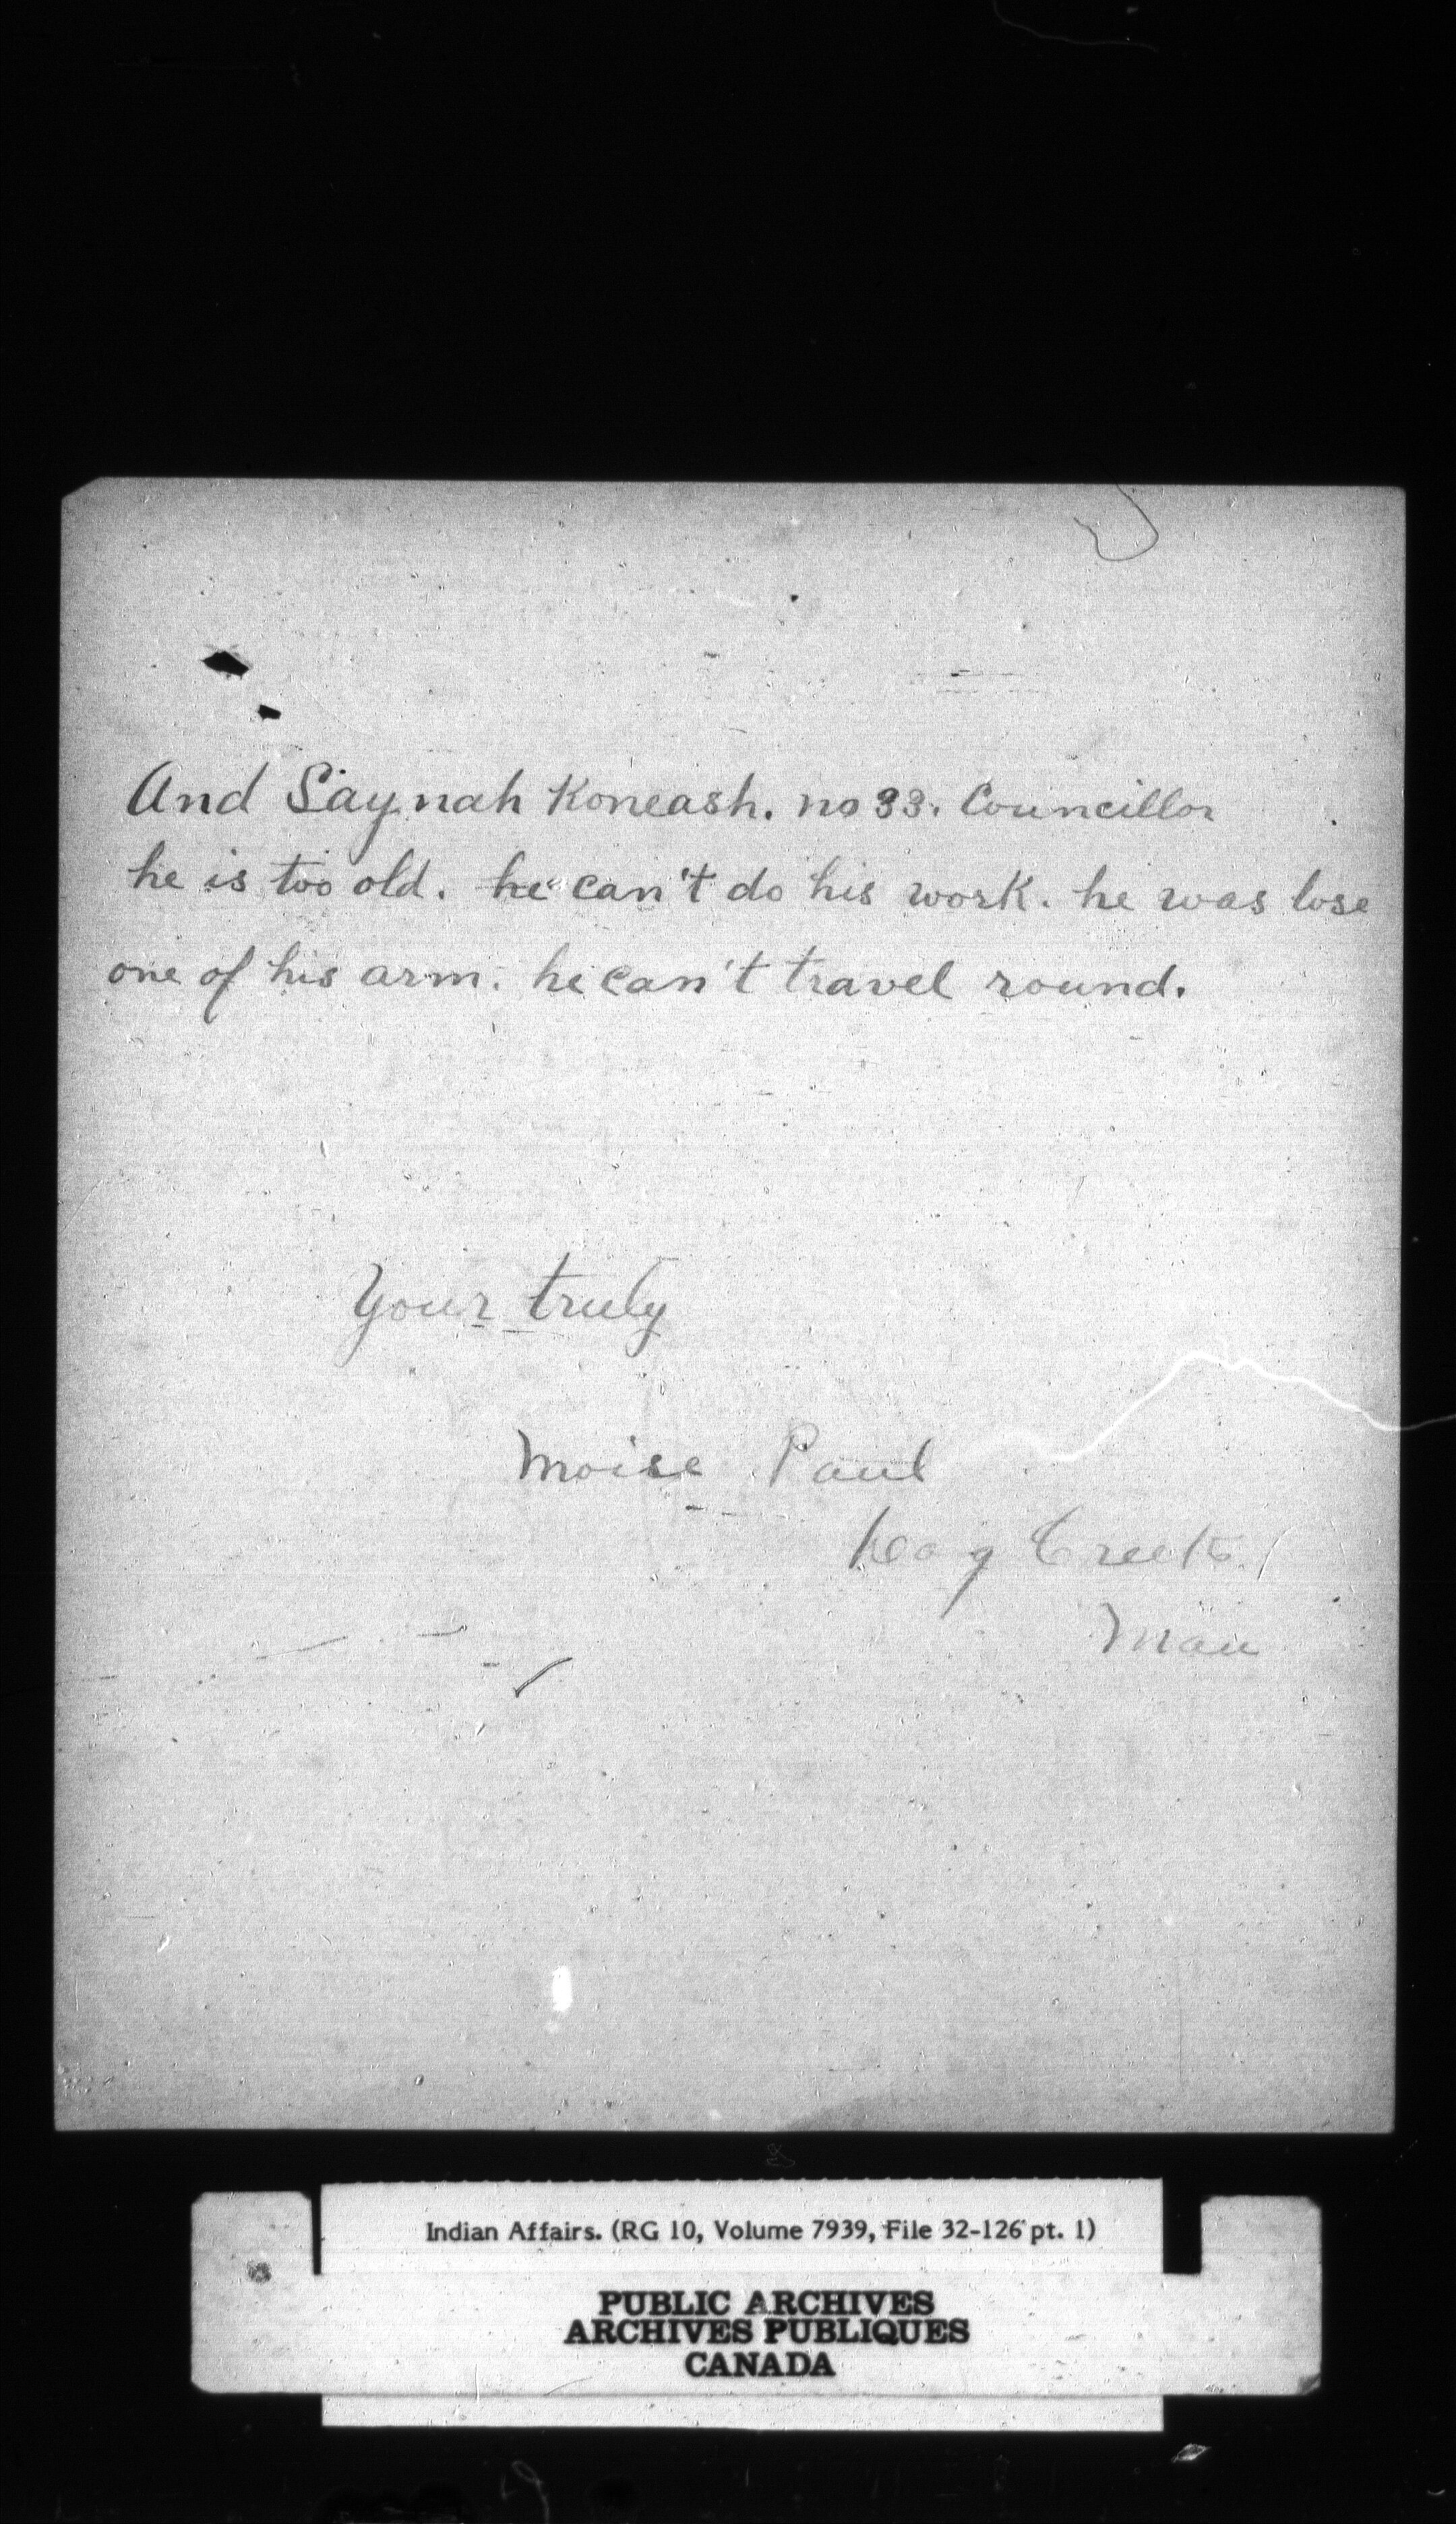 And Saynah Koneash. no 33. Councillor
he is too old. he can't do his work. he was lose
one of his arm. he can't travel round.
Your truly
Moise Paul
Dog Creek
Man
Indian Affairs. (RG 10, Volume 7939, File 32-126 pt. 1)
PUBLIC ARCHIVES
ARCHIVES PUBLIQUES
CANADA